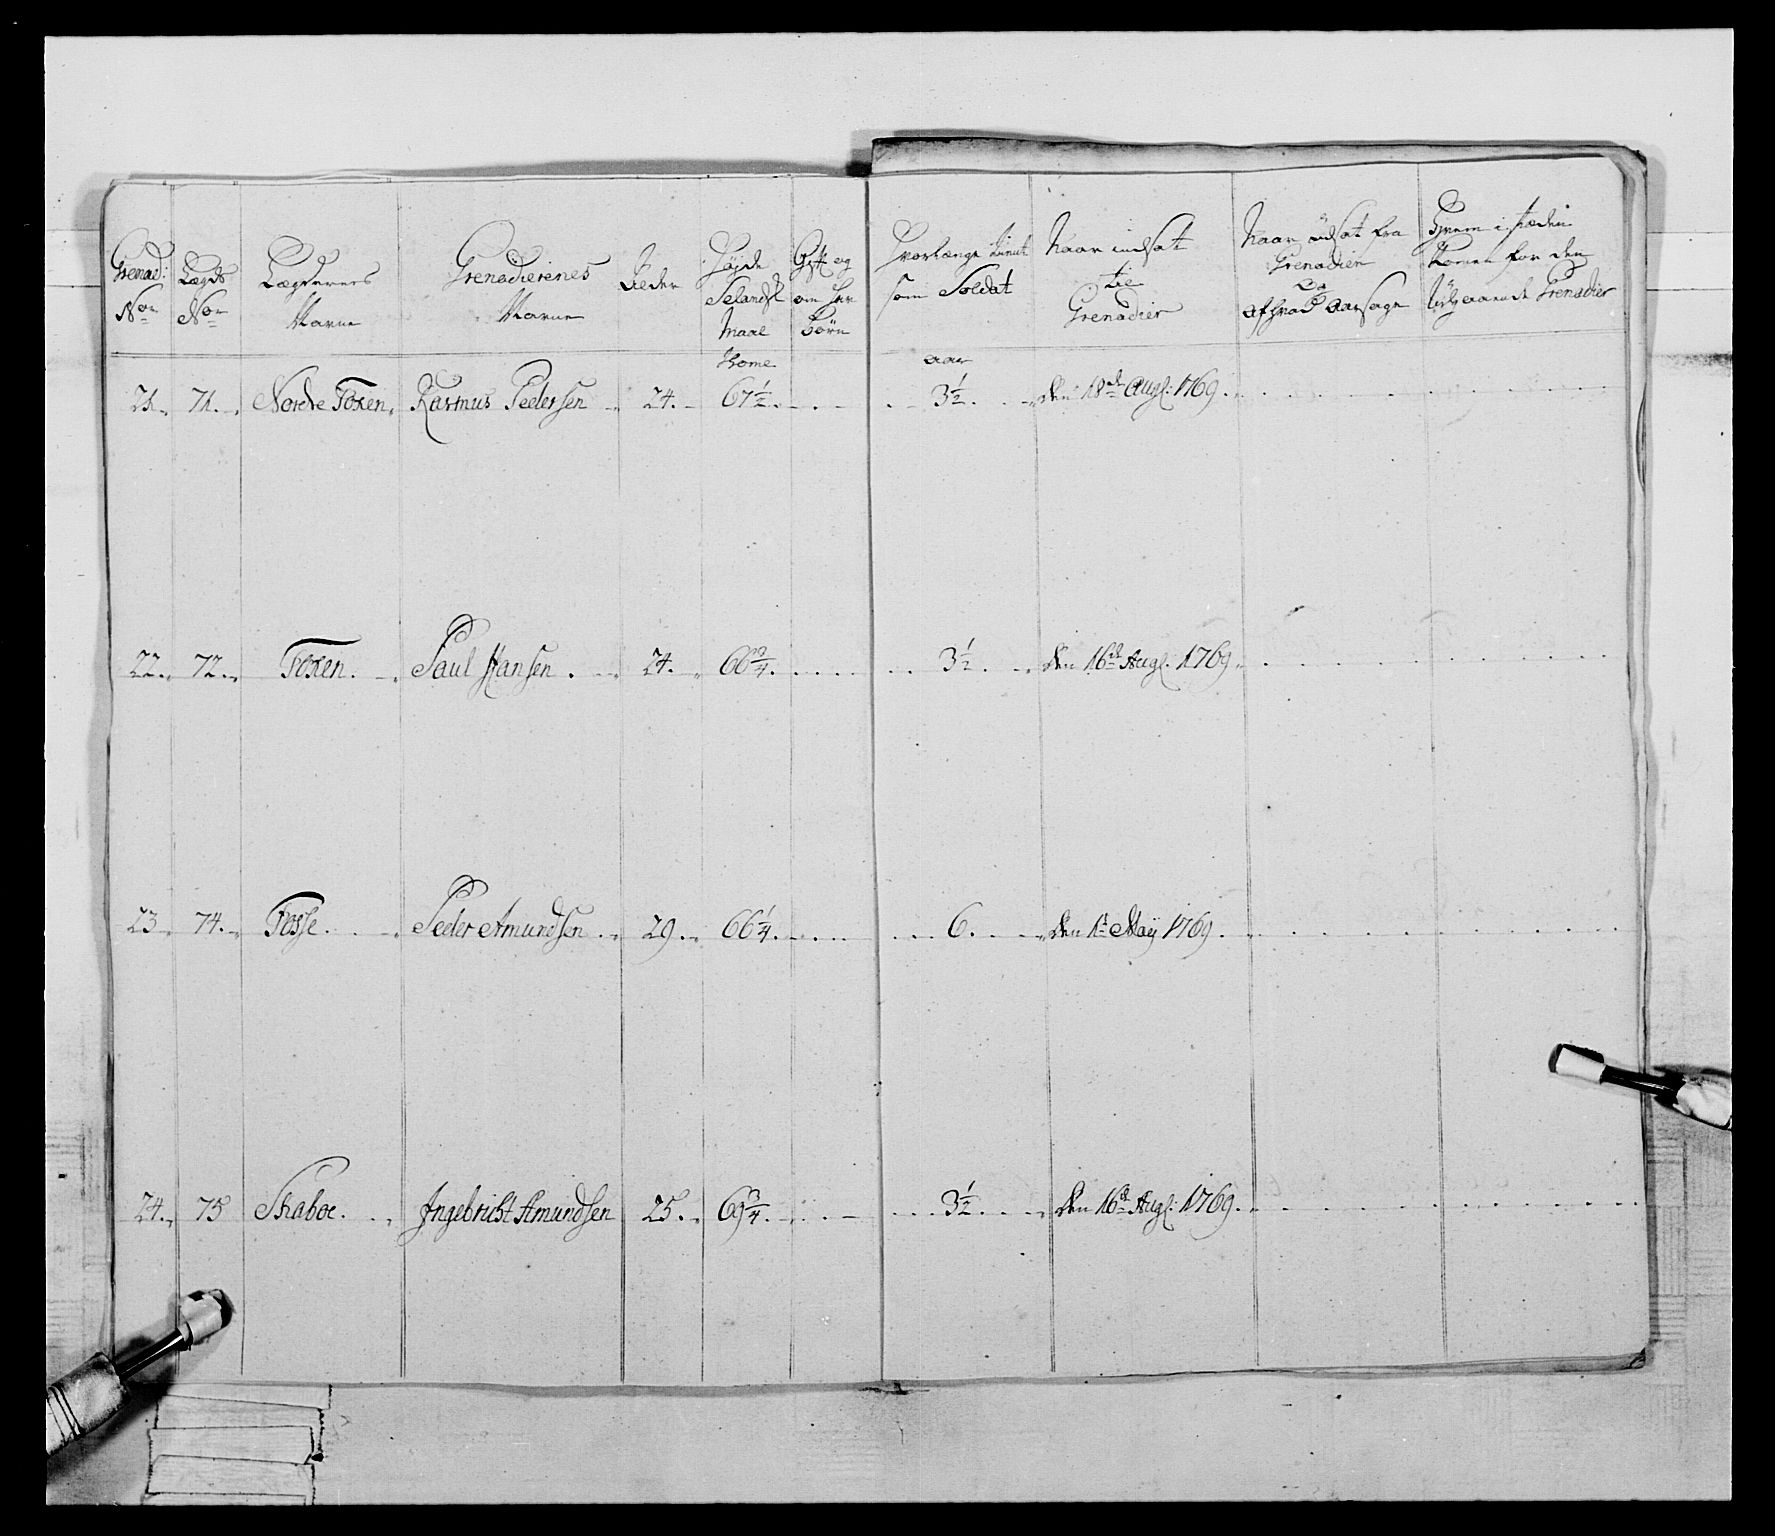 Grenad: No
Lægds No
Lægdernes Navne
Grenadierenes Navne
Alder
Højde Selandsk Maal
Gift og om har Børn
Hvorlænge tient som Soldat
Naar indsat til Grenadier
Naar udsat fra Grenadier og af hvad Aarsage
Hvem i stæden kommen for den udgaaende Grenadier
Tomme aar
21. 71. Nordre Foxen. Rasmus Pedersen 24. 67 1/2. 3 1/2. den 18de Augl: 1769.
22. 72. Foxen. Paul Hansen. 24. 66 3/4. 3 1/2. den 16de Augl: 1769.
23 74. Fosse. Peder Amundsen. 29. 66 1/4. 6. den 1te Maij 1769.
24. 75 Skaboe. Ingebricht Amundsen 25. 69 3/4. 3 1/2. den 16de Augl: 1769.